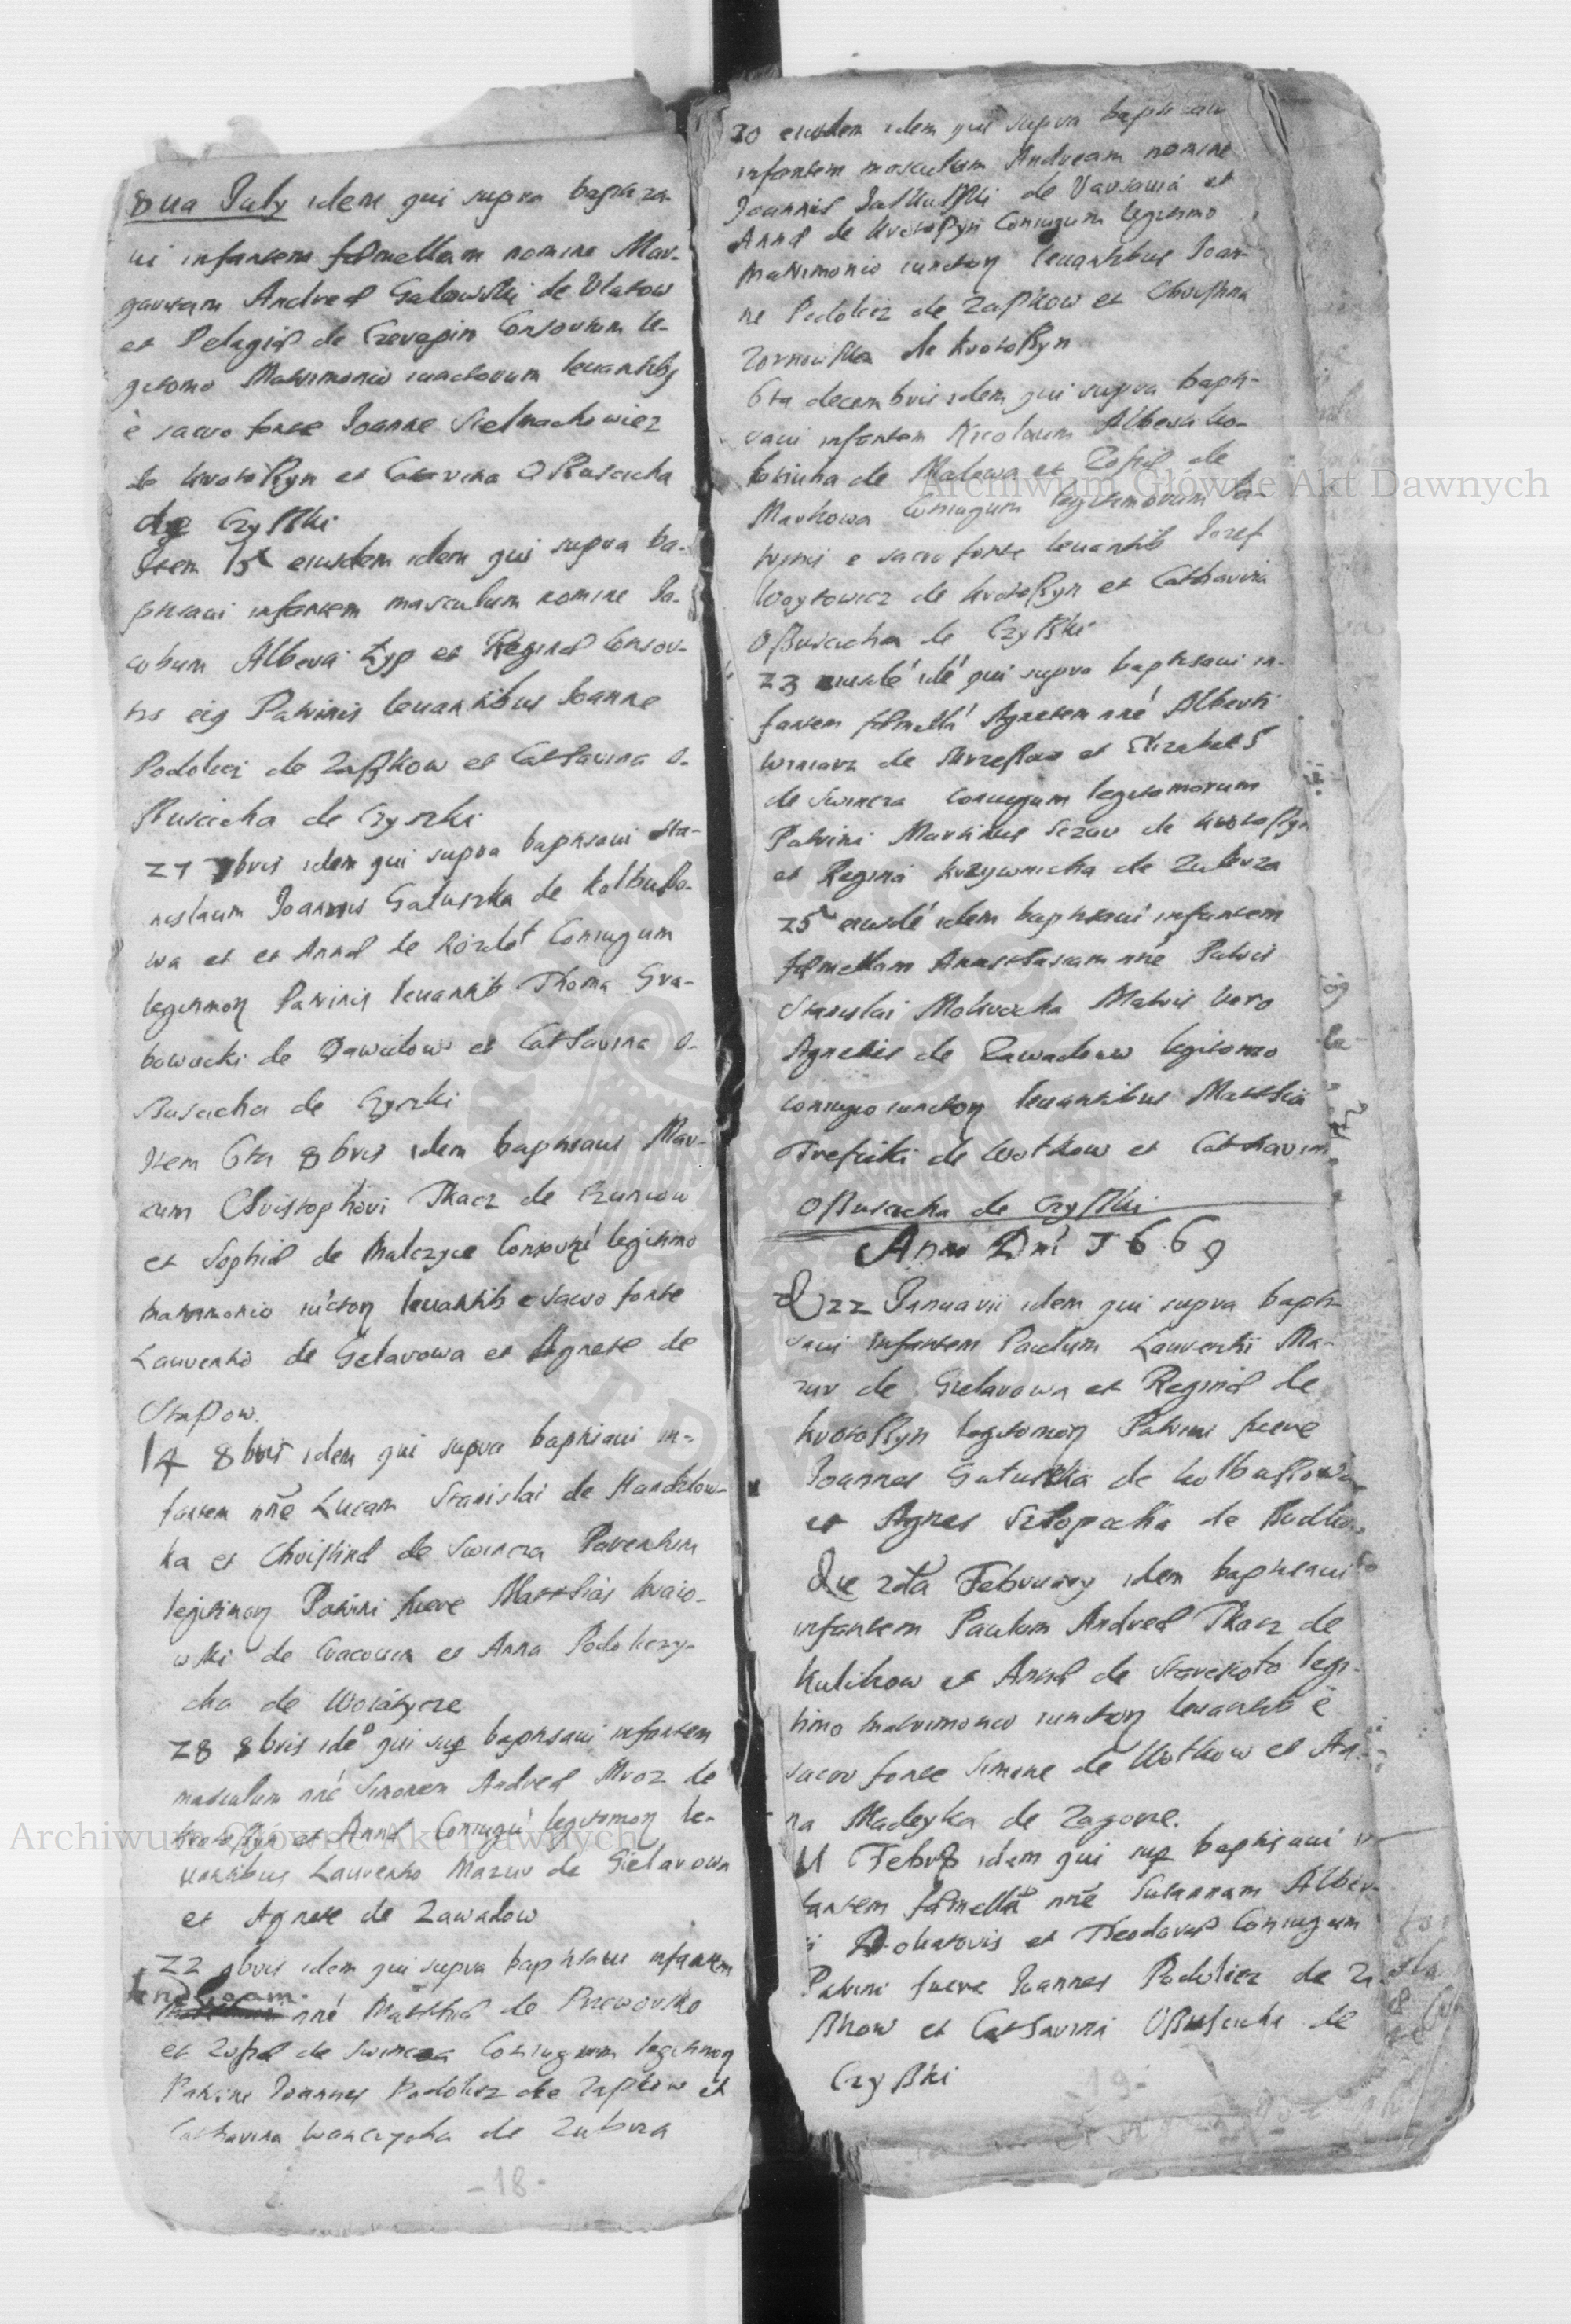 8va July idem qui supra baptiza-
ui infantem foemellam nomine Mar-
garetam Andreae Galowski de Vlasow
et Pelagiae de Czerepin Consortum le-
gitomo Matrimonio iunctorum leuantibus
è sacro fonte Joanne Stelmachowicz
de krotoßyn et Catarina Oßusciicha
de Czyßki
Item 15 eiusdem idem qui supra ba-
ptisaui infantem masculum nomine Ja-
cobum Alberti Zyp et Reginae Consor-
tis eius Patrinis leuantibus Joanne
Podolicz de Zaßkow et Catharina O-
ßuscicha de Czyszki
27 7bris idem qui supra baptisaui Sta-
nislaum Joannis Galuszka de Kolbußo-
wa et et Annae de Coniugum
legitimor Patrinis leuantib Thoma Gra-
bowecki de Dawidow et Catharina O-
ßuscicha de Czyszki
Item 6ta 8bris idem baptisaui Mar-
cum Christophori Tkacz de
et Sophiae de Malczyce legitimo
matrimonio leuantib e sacro fonte
Laurentio de Gelarowa et Agnete de
Stapow.
14 8bris idem qui supra baptisaui in-
fantem nne Lucam Stanislai de Handzlow-
ka et Christinae de Swincza Parentum
legitimor Patrini fuere Matthias kraio-
wski de Cracouia et Anna Podoliczy-
cha de Wolczyce
28 8bris ide qui sup baptisaui infantem
masculum nne Simonem Andreae Mroz de
krotoßyn et Annae Coniugu legitomor le-
uantibus Laurentio Mazur de Gielarowa
et Agnete de Zawadow
22 9bris idem qui supra baptisaui infantem
Andream.
nne Matthiae de Przeworsko
et Zofiae de Swincza Coniugum legitimor
Patrini Joannes Podolicz de Zaßkow et
Catharina Wonczycha de Zubrza
-18-
30 eiusdem idem qui supra baptisaui
infantem masculum Andream nomine
Joannis Jaskulßki de Varsauia et
Annae de krotoßyn Coniugum legitimo
Matrimonio iunctor leuantibus Joan-
ne Podolicz de Zaßkow et Christina
de krotoßyn
6ta decembris idem qui supra bapti-
saui infantem Nicolaum Alberti
de Malowa et Zofiae de
Markowa Coniugum legitimorum Pa-
trinis e sacro fonte leuantib Jozef
Woytowicz de krotoßyn et Catharina
Oßuscicha de Czyßki
23 eiusdé idé qui supra baptisaui in-
fantem foemellá Agnetem nné Alberti
Winiarz de et Elizabet
de Swincza Coniugum legitomorum
Patrini Martinus Sczur de krotoßyn
et Regina krzywnicka de Zubrza
25 eiusdé idem baptisaui infantem
foemellam Anastasiam nné Patris
Stanislai Mokrocha Matris vero
Agnetis de Zawadow legitomo
coniugio iunctor leuantibus Matthia
Trefuski de Wolkow et Catharina
Oßuscicha de Czyßki
Anno Dni 1669
D 22 Januarii idem qui supra bapti-
saui infantem Paulum Laurentii Ma-
zur de Gielarowa et Reginae de
krotoßyn legitomor Patrini fuere
Joannes Galuszka de kolbußowa
et Agnes de
Die 2da February idem baptisaui
infantem Paulum Andreae Tkacz de
Kulikow et Annae de Staresioło legi-
timo matrimonio iunctor leuantib è
sacro fonte Simone de Wolkow et An-
na Madeyka de Zagorze.
11 Febru idem qui sup baptisaui in-
fantem foemellá nne Susannam Alber-
ti et Theodorae Coniugum
Patrini fuere Joannes Podolicz de Za-
ßkow et Catharina Oßuscicha de
Czyßki
-19-
Archiwum Główne Akt Dawnych
Archiwum Główne Akt Dawnych